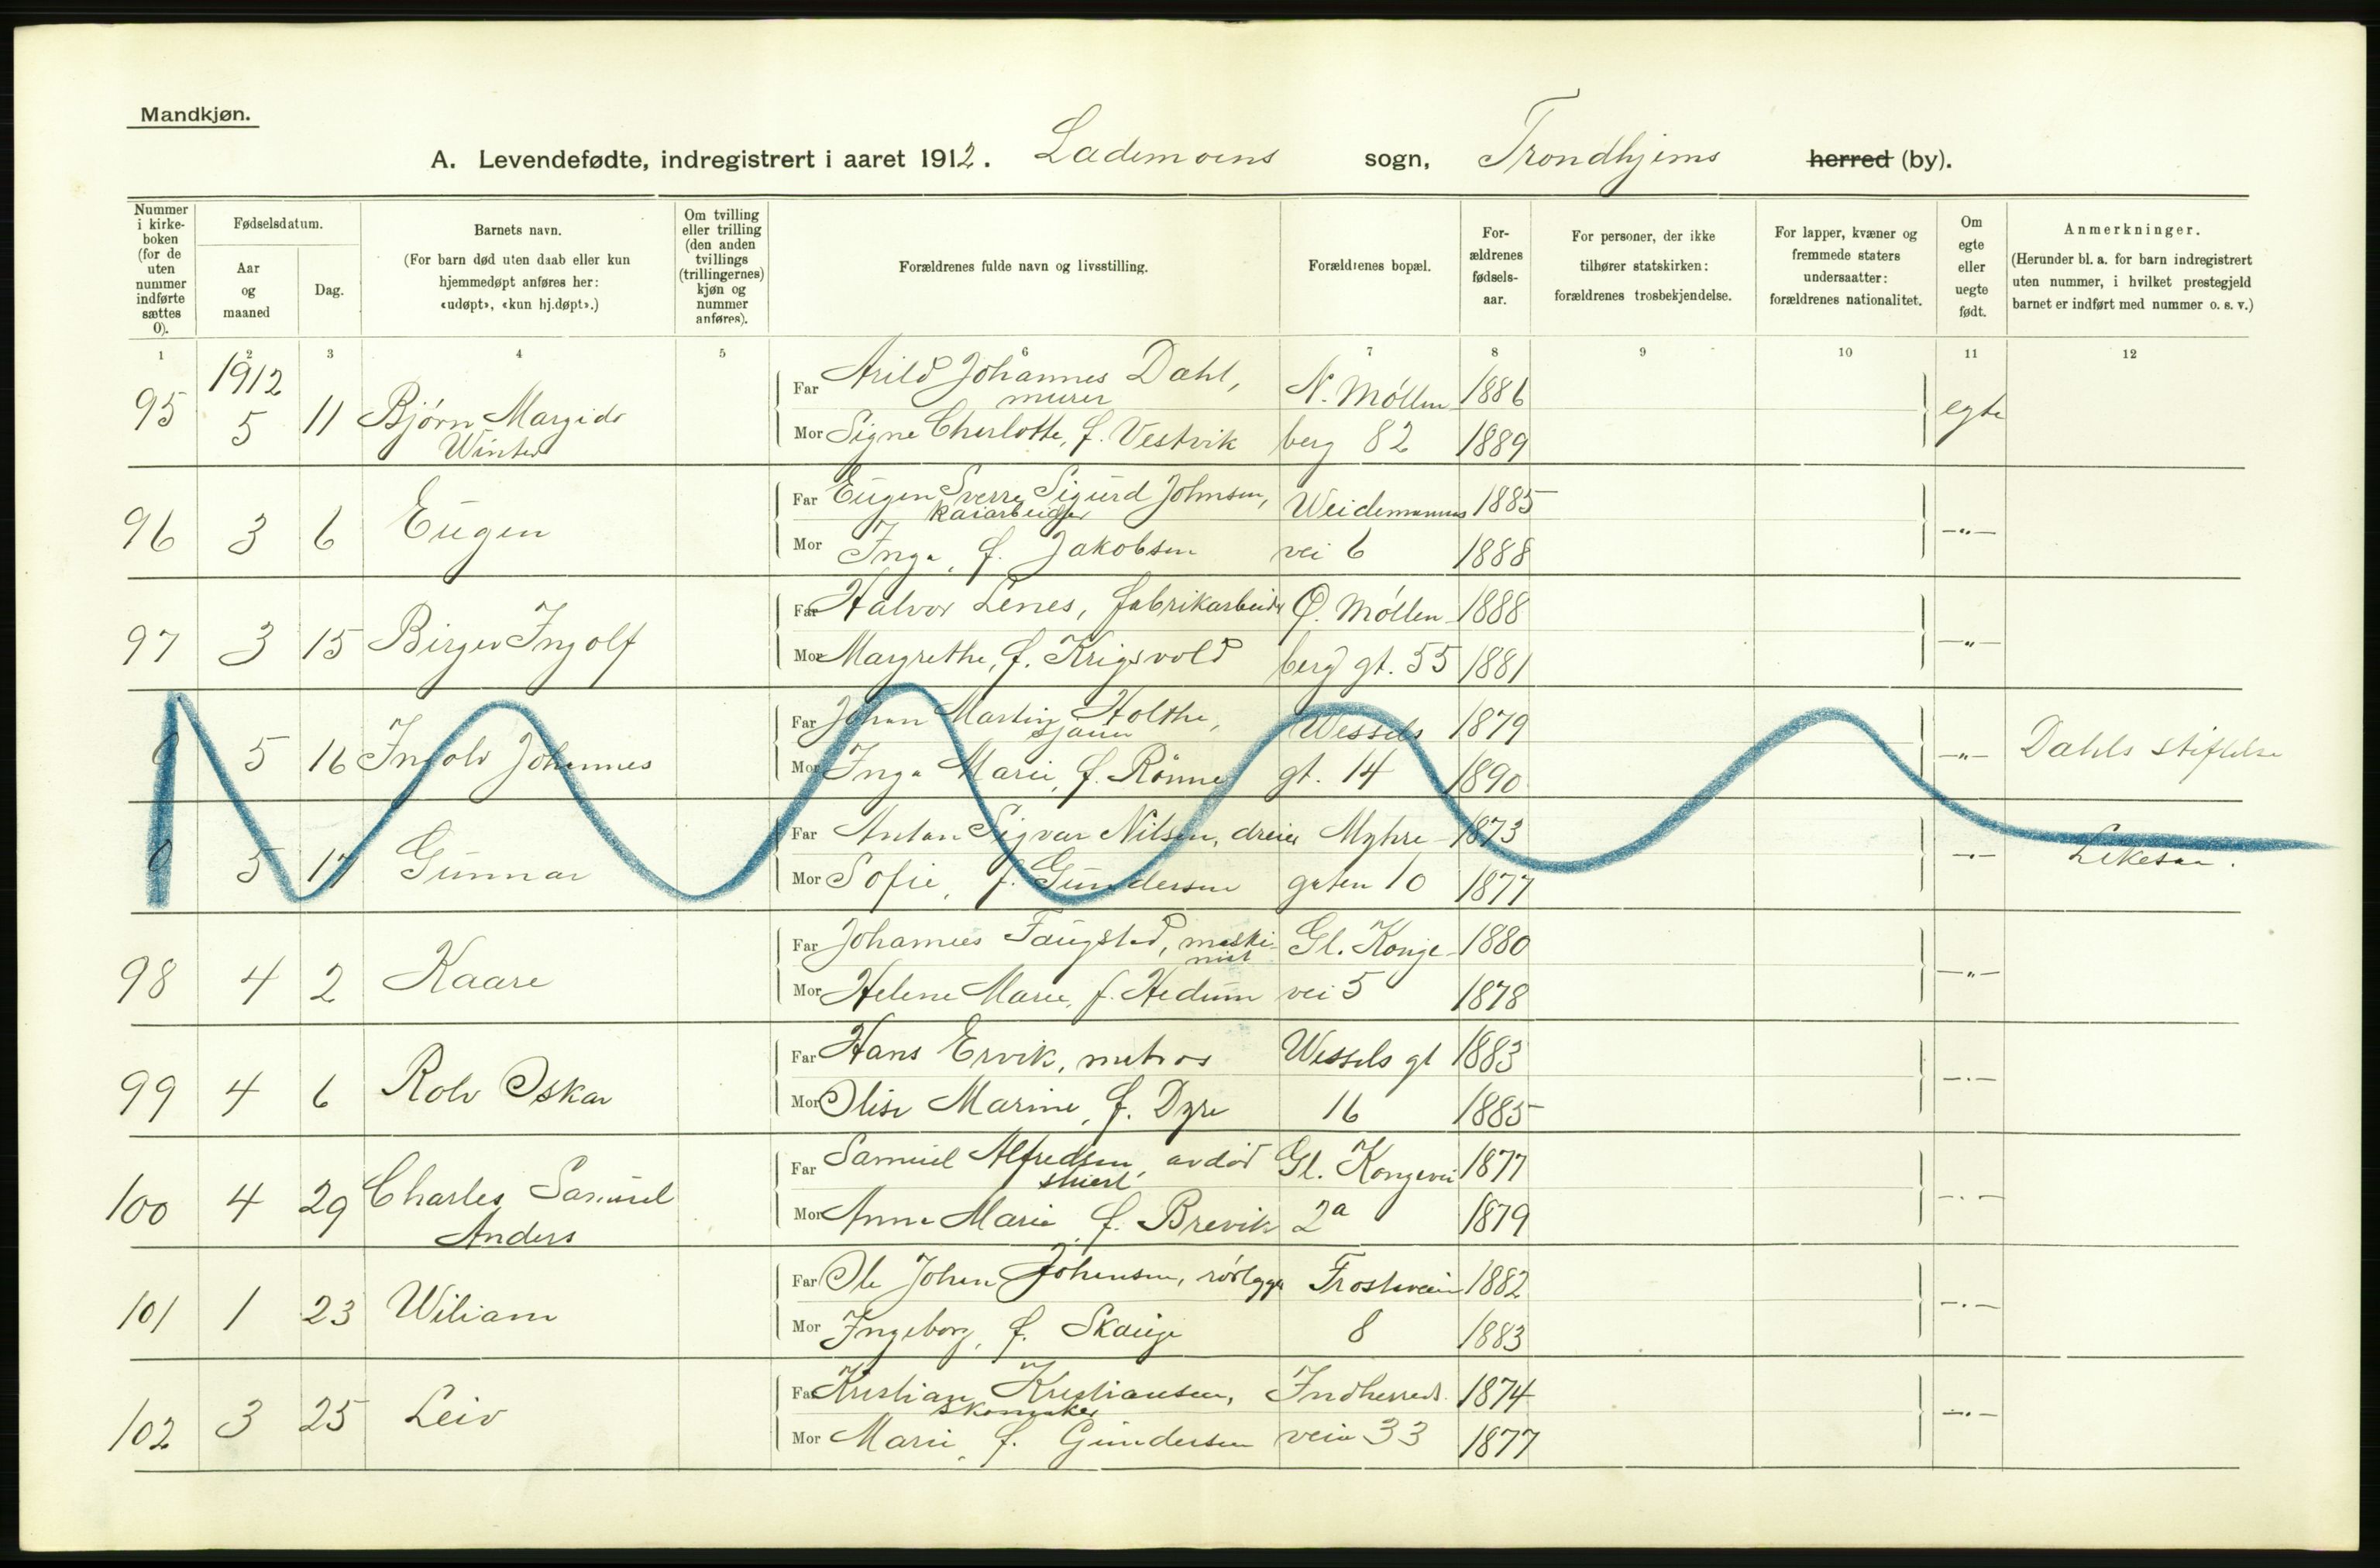 Mandkjøn.
A. Levendefødte, indregistrert i aaret 1912. Lademoens sogn, Trondhjems herred (by).
Nummer i kirke-boken (for de uten nummer indførte sættes 0).
Fødselsdatum.
Aar og maaned
Dag.
Barnets navn.
(For barn død uten daab eller kun hjemmedøpt anføres her: «udøpt», «kun hj.døpt».)
Om tvilling eller trilling (den anden tvillings (trillingernes) kjøn og nummer anføres).
Forældrenes fulde navn og livsstilling.
Forældrenes bopæl.
For-ældrenes fødsels-aar.
For personer, der ikke tilhører statskirken: forældrenes trosbekjendelse.
For lapper, kvæner og fremmede staters undersaatter: forældrenes nationalitet.
Om egte eller uegte født.
Anmerkninger.
(Herunder bl. a. for barn indregistrert uten nummer, i hvilket prestegjeld barnet er indført med nummer o. s. v.)
1 2 3 4 5 6 7 8 9 10 11 12
1912
95 5 11 Bjørn Margido Winter
Far Arild Johannes Dahl, murer N. Möllen- 1886 egte
Mor Signe Charlotte, f. Vestvik berg 82 1889
96 3 6 Eugen
Far Eugen Sverre Sigurd Johnsen, kaiarbeider Weidemanns 1885 -"-
Mor Inga, f. Jakobsen vei 6 1888
97 3 15 Birger Ingolf
Far Halvor Lenes, fabrikarbeider Ø. Möllen- 1888 -"-
Mor Margrethe, f. Krigsvold berg gt. 55 1881
0 5 16 Ingolv Johannes
Far Johan Martin Holthe, sjauer Wessels 1879 -"- Dahls stiftelse
Mor Inga Marie, f. Rönne gt. 14 1890
0 5 17 Gunnar
Far Anton Sigvar Nilsen, dreier Myhre- 1873 -"- Likesaa.
Mor Sofie, f. Gundersen gaten 10 1877
98 4 2 Kaare
Far Johannes Faugstad, maskinist Gl. Konge- 1880 -"-
Mor Helene Marie, f. Hedum vei 5 1878
99 4 6 Rolv Oskar
Far Hans Ervik, matros Wessels gt 1883 -"-
Mor Olise Marine, f. Dyre 16 1885
100 4 29 Charles Samuel Anders
Far Samuel Alfredsen, avdød Gl. Kongevei 1877 -"-
Mor Anna Marie, f. Brevik 2a 1879
101 1 23 Wiliam
Far Ole Johan Johansen, rörlægger Frostaveien 1882 -"-
Mor Ingeborg, f. Skauge 8 1883
102 3 25 Leiv
Far Kristian Kristiansen, skomaker Indherreds- 1874 -"-
Mor Marie, f. Gundersen veien 33 1877